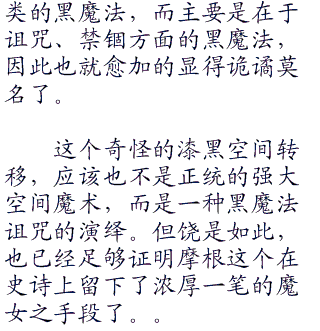 类的黑魔法，而主要是在于
诅咒、禁锢方面的黑魔法，
因此也就愈加的显得诡谲莫
名了。
这个奇怪的漆黑空间转
移，应该也不是正统的强大
空间魔术，而是一种黑魔法
诅咒的演绎。但饶是如此，
也已经足够证明摩根这个在
史诗上留下了浓厚一笔的魔
女之手段了。。